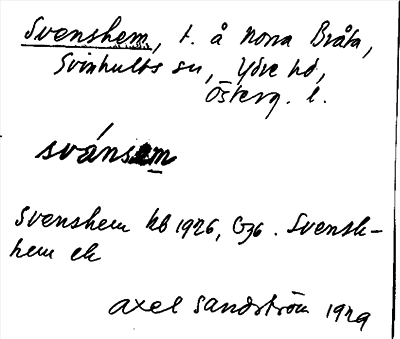 Svenshem, t. å Norra Bråta,
Svinhults sn, Ydre hd,
Österg. l.
svánsem
Svenshem kb 1926, G36. Svens-
hem ek
Axel Sandström 1929